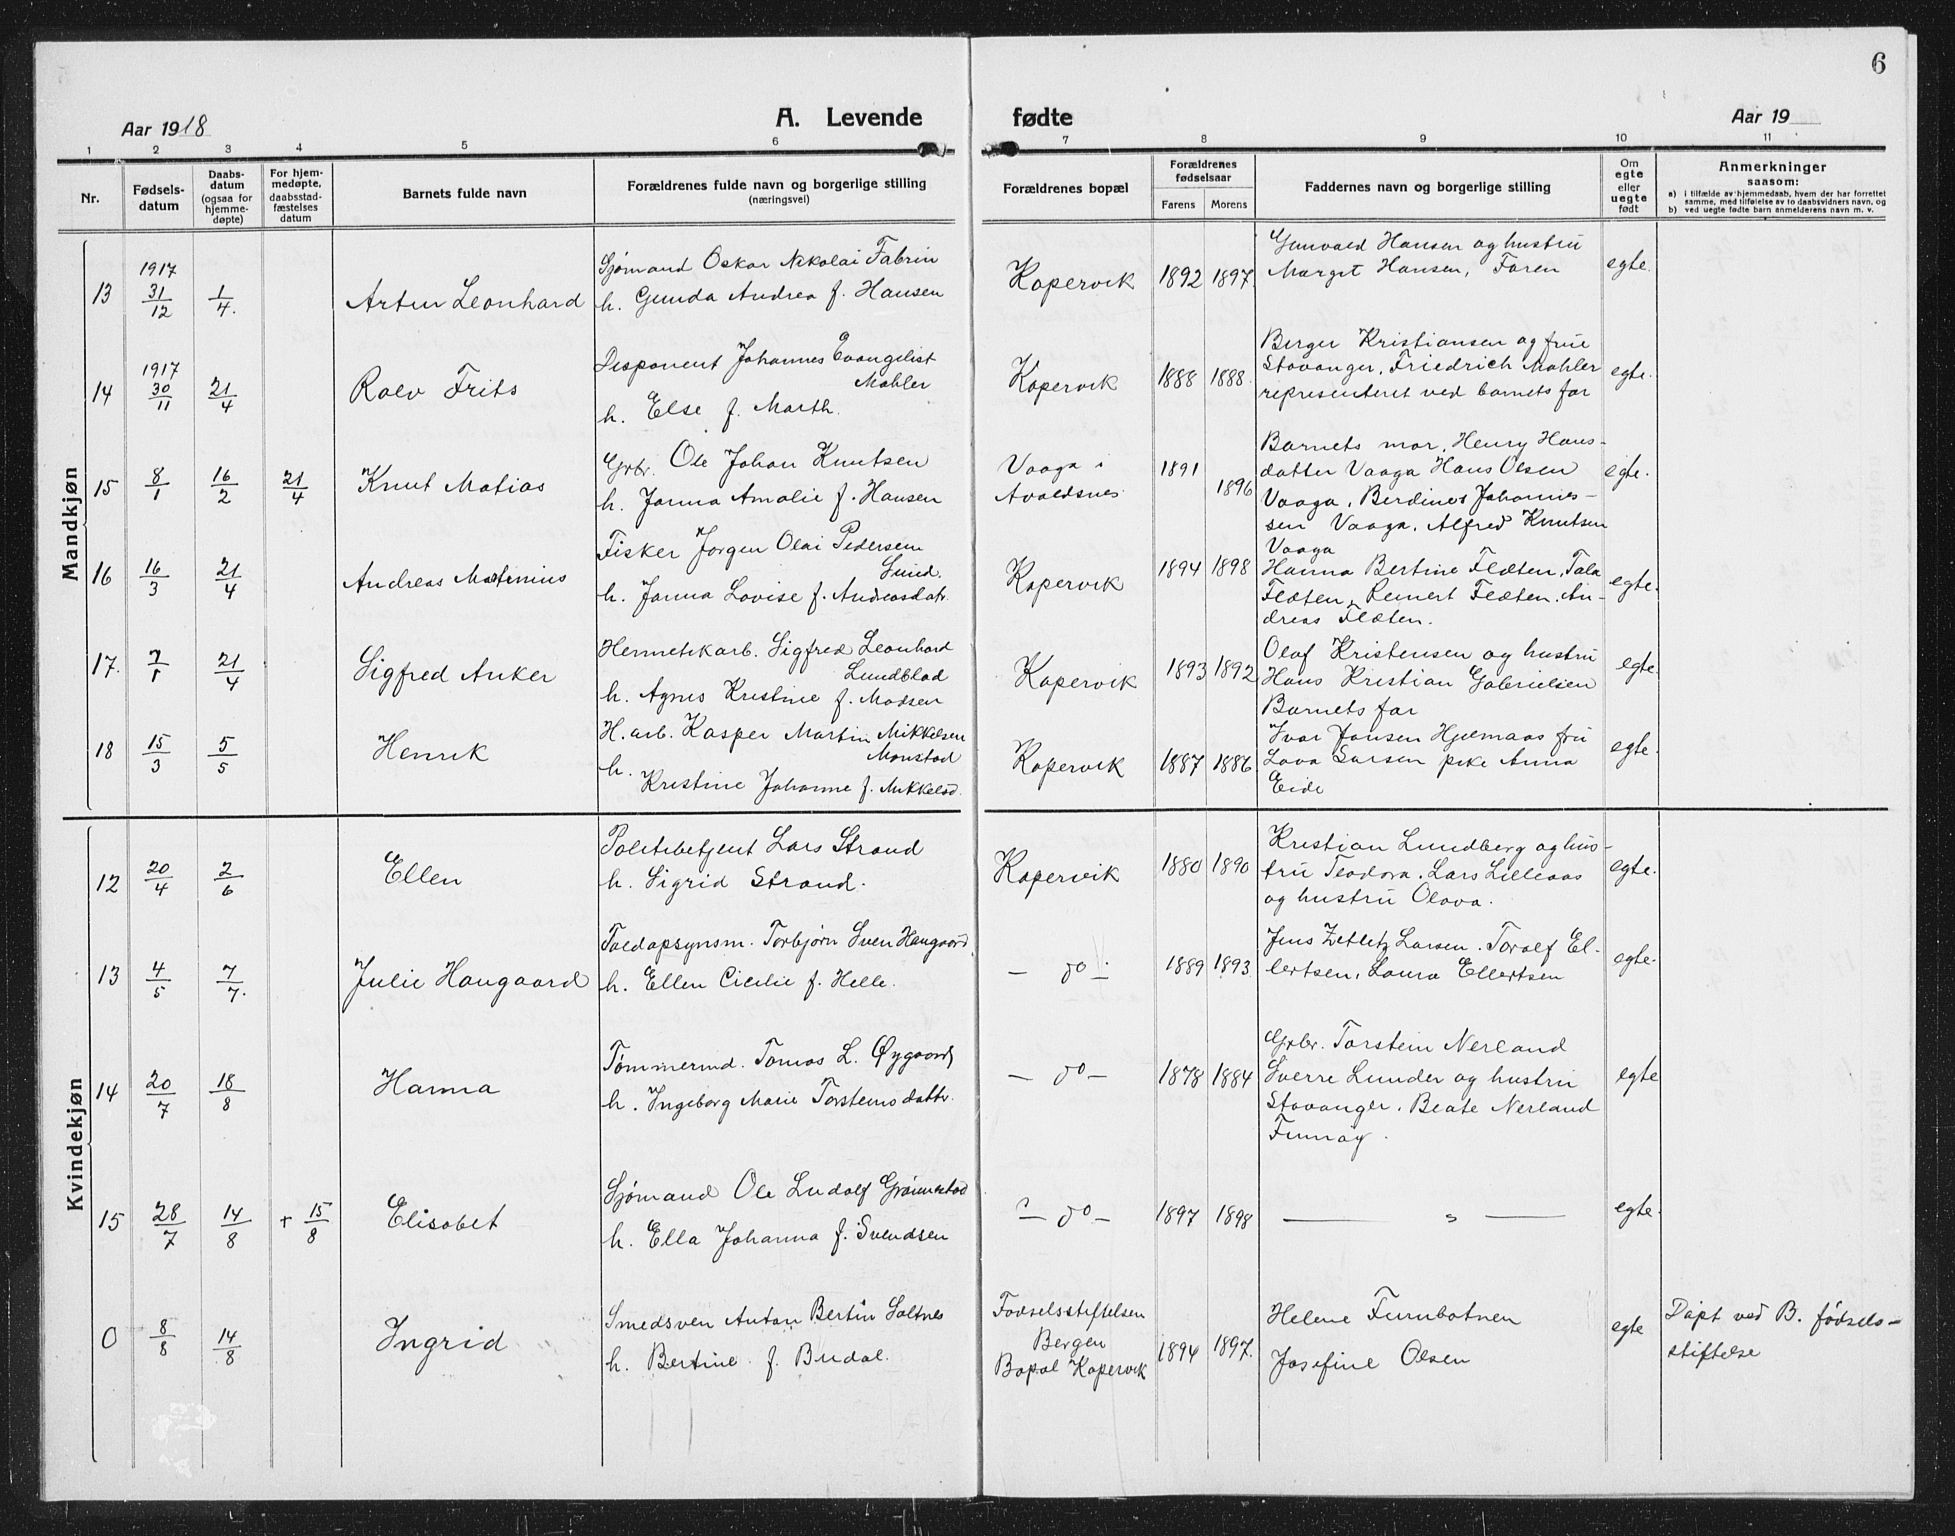 6
Aar 1918
A. Levende
fødte
Aar 19
1 2 3 4 5 6 7 8 9 10 11
Nr.
Fødsels-
datum
Daabs-
datum
(ogsaa for
hjemme-
døpte)
For hjem-
medøpte,
daabsstad-
fæstelses
datum
Barnets fulde navn
Forældrenes fulde navn og borgerlige stilling
(næringsvei)
Forældrenes bopæl
Forældrenes
fødselsaar
Farens Morens
Faddernes navn og borgerlige stilling
Om
egte
eller
uegte
født
Anmerkninger
saasom:
a) i tilfælde av hjemmedaab, hvem der har forrettet
samme, med tilføielse av to daabsvidners navn, og
b) ved uegte fødte barn anmelderens navn m. v.
Mandkjøn
13
1917
31/12
1/4.
Artur Leonhard
Sjømand Oskar Nikolai Fabrin
h. Gunda Andrea f. Hansen
Kopervik
1892 1897.
Gunvald Hansen og hustru
Margit Hansen, Faren
egte.
14
1917
30/11
21/4
Rolv Frits
Disponent Johannes Evangelist
Mohler
h. Else f. Marth.
Kopervik
1888 1888.
Berger Kristiansen og frue
Stavanger, Friedrich Mohler
representeret ved barnets far
egte.
15
8/1
16/2
21/4
Knut Matias
Grbr. Ole Johan Knutsen
h. Janna Amalie f. Hansen
Vaaga i
Avaldsnes
1891
1896
Barnets mor, Henry Hans-
datter Vaaga Hans Olsen
Vaaga, Berdines Johannes-
sen Vaaga, Alfred Knutsen
Vaaga
egte.
16
16/3
21/4
Andreas Martinius
Fisker Jørgen Olai Pedersen
Lund.
h. Janna Lovise f. Andreasdatr.
Kopervik
1894 1898
Hanna Bertine Flæten, Tala
Flæten, Reinert Flæten. An-
dreas Flæten.
egte.
17.
7/1
21/4
Sigfred Anker
Hermetikarb. Sigfred Leonhard
Lundblad
h. Agnes Kristine f. Madsen
Kopervik
1893 1892
Olaf Kristensen og hustru
Hans Kristian Gabrielsen
Barnets far
egte.
18
15/3
5/5
Henrik
H.arb. Kasper Martin Mikkelsen
Monstad
h.
Kristine Johanne f. Mikkelsd.
Kopervik
1887 1886
Ivar Jansen Hjelmaas fru
Lava Larsen pike Anna
Eide
egte.
Kvindekjøn
12
20/4
2/6
Ellen
Politibetjent Lars Strand
h. Sigrid Strand.
Kopervik
1880 1890
Kristian Lundberg og hus-
tru Teodora, Lars Lilleaas
og hustru Olava.
egte.
13
4/5
7/7.
Julie Haugaard
Toldopsynsm. Torbjørn Sven Haugaard
h. Ellen Cicilie f. Helle.
— do —
1889 1893.
Jens Zetlitz Larsen. Toralf El-
lertsen, Laura Ellertsen
egte.
14
20/7
18/8
Hanna
Tømmermd. Tomas L. Øygaard
h. Ingeborg Marie Torsteinsdattr.
— do —
1878 1884
Grbr. Torstein Nerland
Sverre Lunder og hustru
Stavanger, Beate Nerland
Finnøy.
egte
15
28/7
14/8
+ 15/8
Elisabet
Sjømand Ole Ludolf Grønnestad
h. Ella Johanna f. Svendsen
? — do —
1897 1898
— " —
egte.
0
8/8
14/8
Ingrid
Smedsven Anton Bertin Saltnes
h. Bertine f. Budal.
Fødselsstiftelsen
Bergen
Bopal Kopervik
1894 1897.
Helene Furubotnen
Josefine Olsen
egte
Døpt ved B. fødsels-
stiftelse